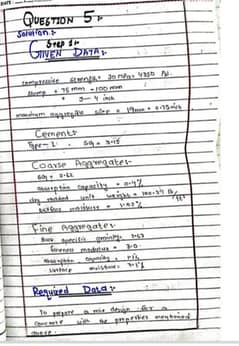 DATE:
QUESTION 5:-
Solution:-
STEP 1:-
GIVEN DATA:-
compressive strength = 30 MPa = 4350 Psi
Slump = 75 mm - 100 mm
= 3 - 4 inch
maximum aggregate size = 19mm = 0.75 inch
Cement:-
Type-I SG = 3.15
Coarse Aggregates:-
SG =
absorption capacity =
dry rodded unit weight = lb/ft³
surface moisture =
Fine Aggregates:-
Bulk specific gravity =
fineness modulus =
absorption capacity =
surface moisture =
Required Data:-
To prepare a mix design for a
concrete with the properties mentioned
above.